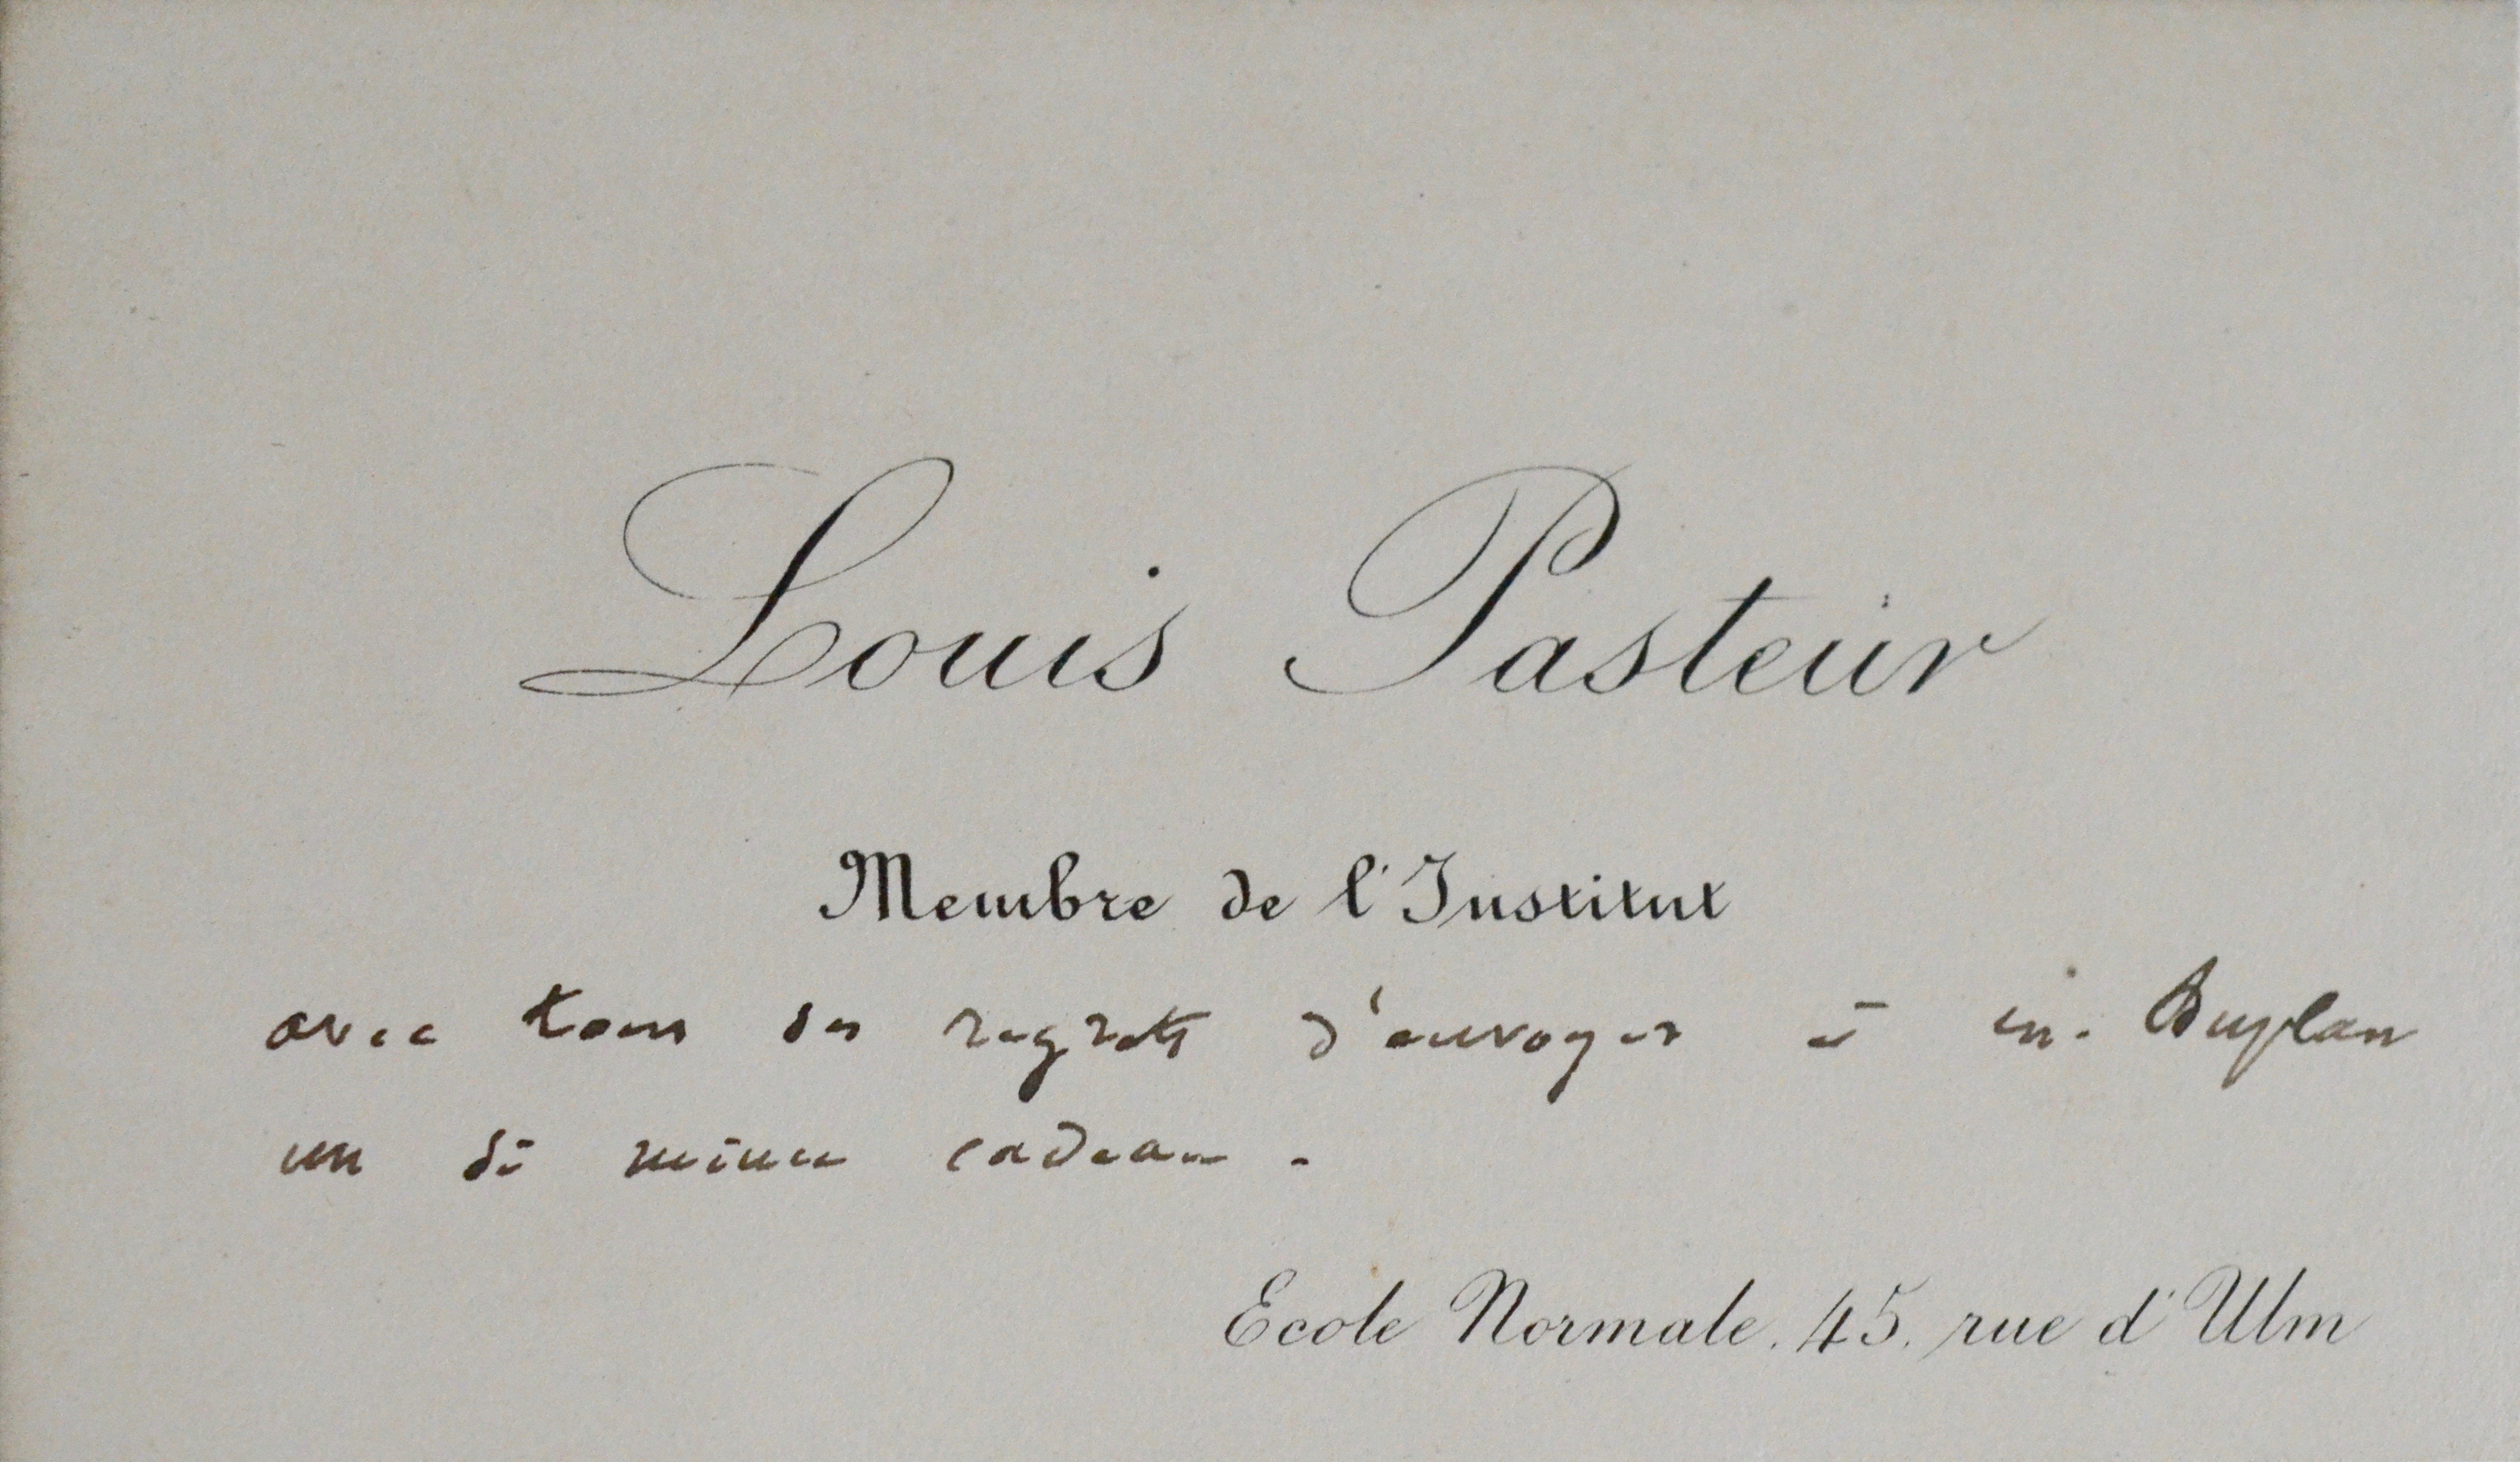 Louis Pasteur
Membre de l'Institut
avec tous ses regrets d'envoyer à m. Duplan
un si mince cadeau.
Ecole Normale. 45. rue d'Ulm